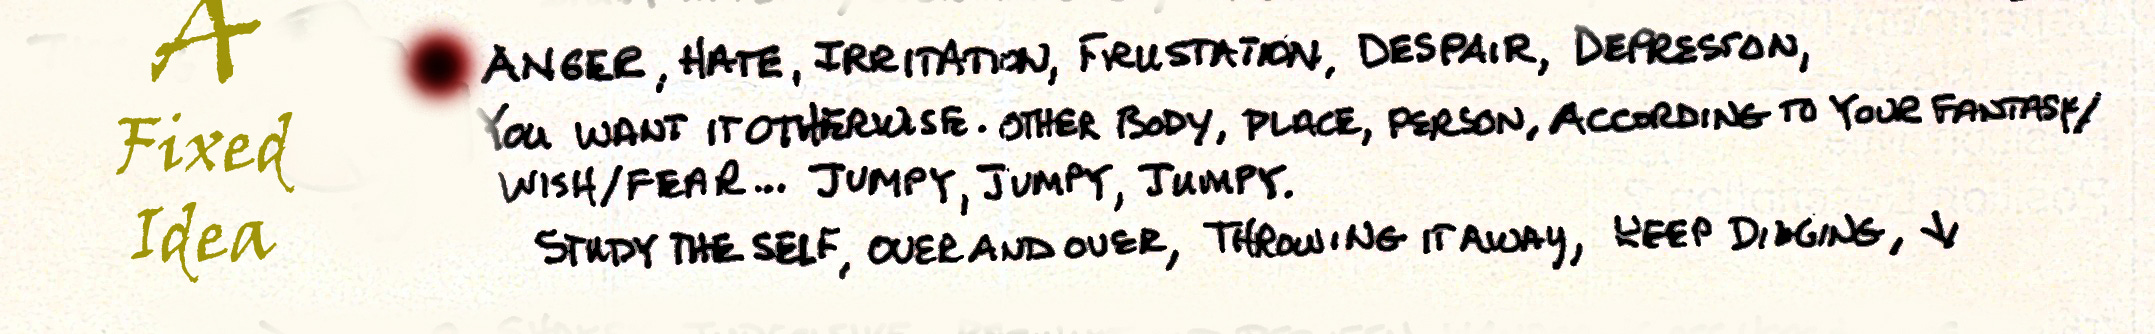 A
Fixed
Idea
ANGER, HATE, IRRITATION, FRUSTATION, DESPAIR, DEPRESSION,
YOU WANT IT OTHERWISE. OTHER BODY, PLACE, PERSON, ACCORDING TO YOUR FANTASY/
WISH/FEAR... JUMPY, JUMPY, JUMPY.
STUDY THE SELF, OVER AND OVER, THROWING IT AWAY, KEEP DIGGING, ↓